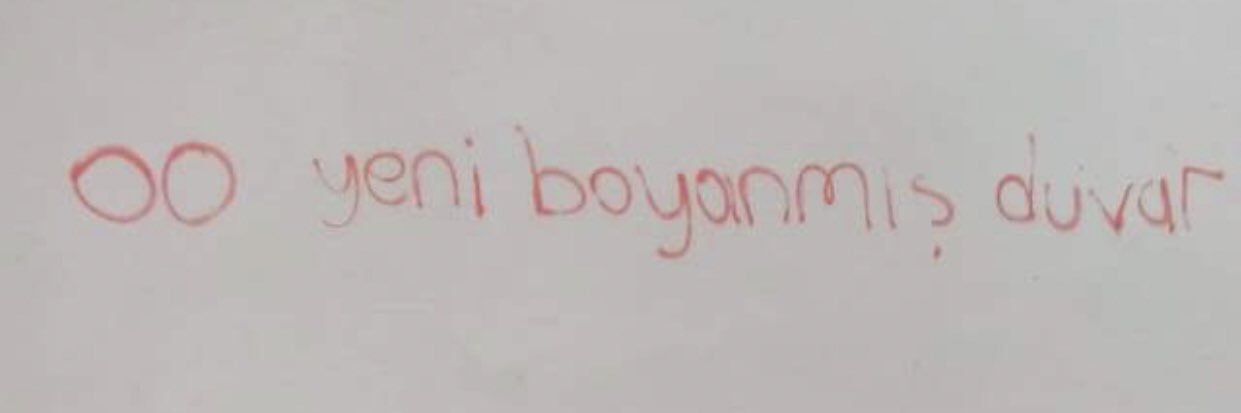 OO yeni boyanmış duvar